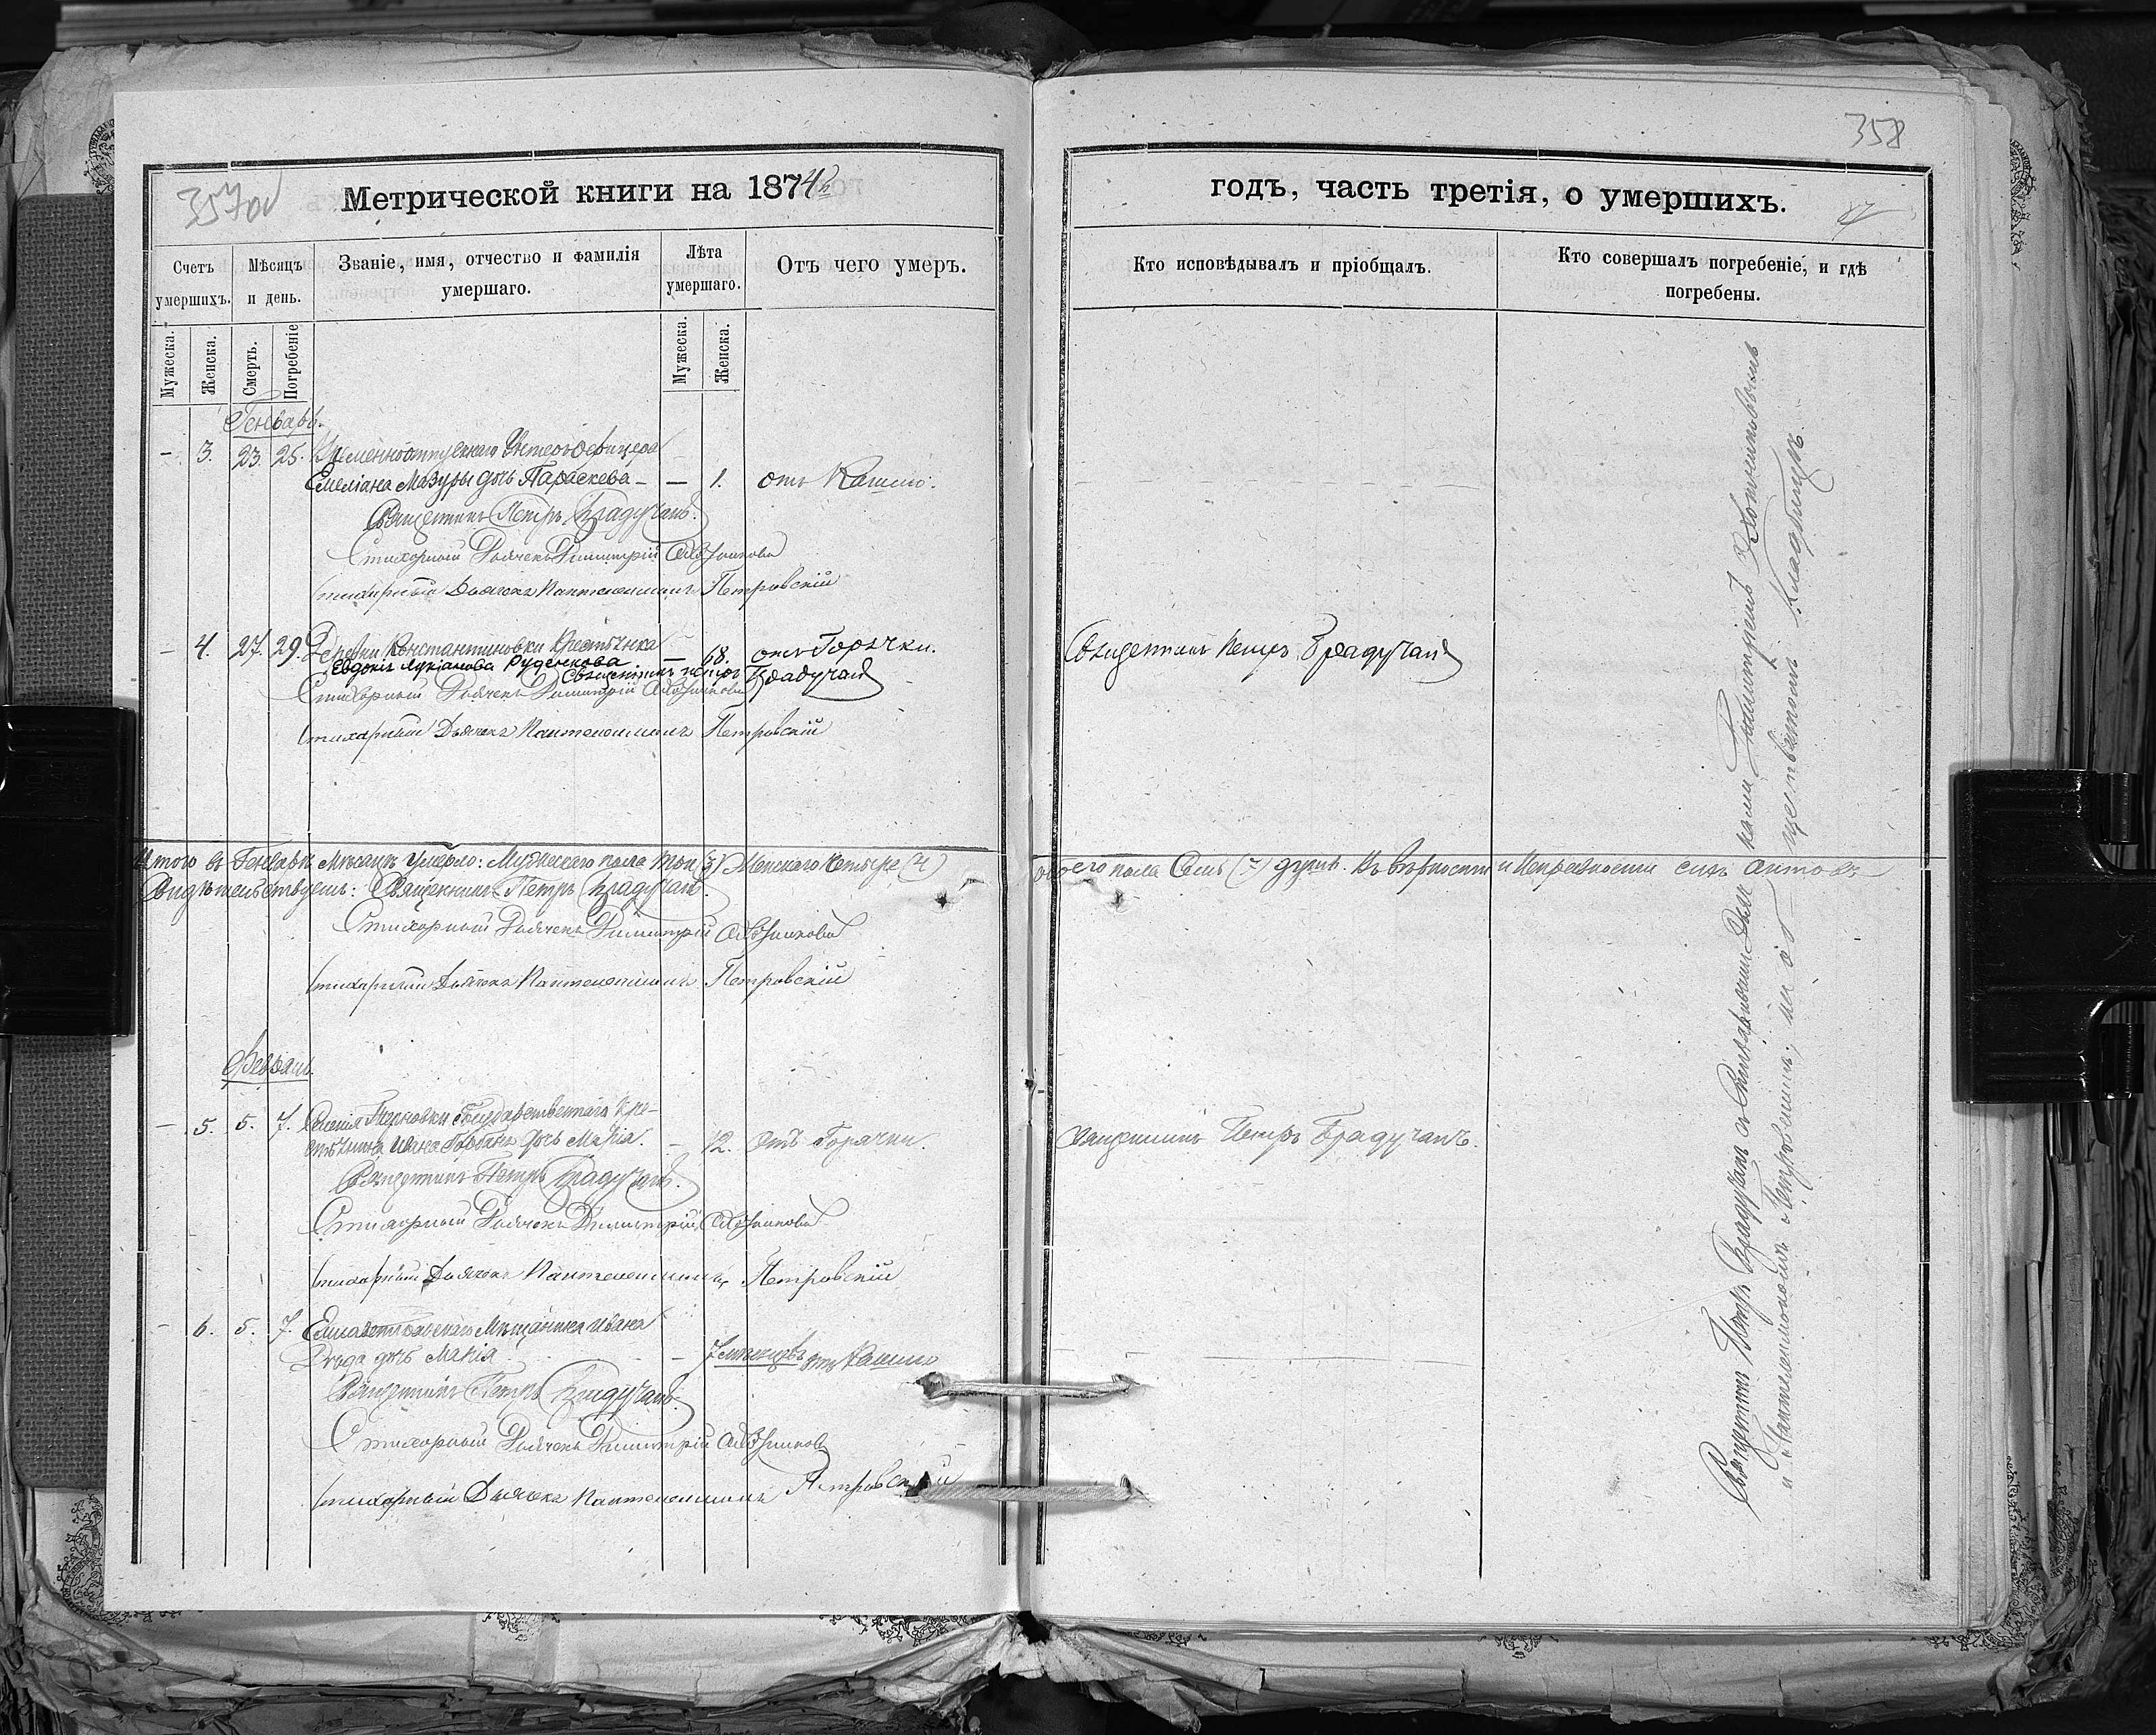 357об
Метрической книги на 1874й
Счетъ умершихъ.
Мѣсяцъ и день.
Званіе, имя, отчество и фамилія умершаго.
Лѣта умершаго.
Отъ чего умеръ.
Мужеска.
Женска.
Смерть.
Погребеніе
Мужеска.
Женска.
Генварь.
- 3. 23. 25. Временноотпускнаго Унтеръ Офицера
Емеліана Мазуры дочь Параскева - — 1. отъ Кашлю.
Священникъ Петръ Брадучанъ.
Стихарный Дьячекъ Димитрій
Стихарный Дьячекъ Пантелеимонъ Петровскій
- 4. 27. 29. Деревни Константиновки Крестьянка
Евдокія Лукіанова Руденкова — 68. отъ Горячки.
Священникъ Петръ Брадучанъ
Стихарный Дьячекъ Димитрій
Стихарный Дьячекъ Пантелеимонъ Петровскій
Итого въ Генварѣ Мѣсяцѣ умерло: Мужескаго пола три (3) Женскаго Четыре (4)
Свидѣтельствуемъ: Священникъ Петръ Брадучанъ.
Стихарный Дьячекъ Димитрій
Стихарный Дьячекъ Пантелеимонъ Петровскій
Февраль.
- 5. 5. 7. Селенія Терновки Государственнаго Кре-
стьянина Ивана дочь Марія. - 12. Отъ Горячки.
Священникъ Петръ Брадучанъ.
Стихарный Дьячекъ Димитрій
Стихарный Дьячекъ Пантелеимонъ Петровскій
- 6. 5. 7. Елисаветградскаго Мѣщанина Ивана
дочь Марія - 7 мѣсяцевъ отъ Кашлю
Священникъ Петръ Брадучанъ.
Стихарный Дьячекъ Димитрій
Стихарный Дьячекъ Пантелеимонъ Петровскій
358
годъ, часть третія, о умершихъ.
Кто исповѣдывалъ и пріобщалъ.
Кто совершалъ погребеніе, и гдѣ погребены.
Священникъ Петръ Брадучанъ
обоего пола Семь (7) душъ. Въ вѣрности и исправности сихъ актовъ
Священникъ Петръ Брадучанъ.
Священникъ Петръ Брадучанъ съ Стихарными Дьячками Димитріемъ
и Пантелеимономъ Петровскимъ, на об-щественномъ кладбищѣ.